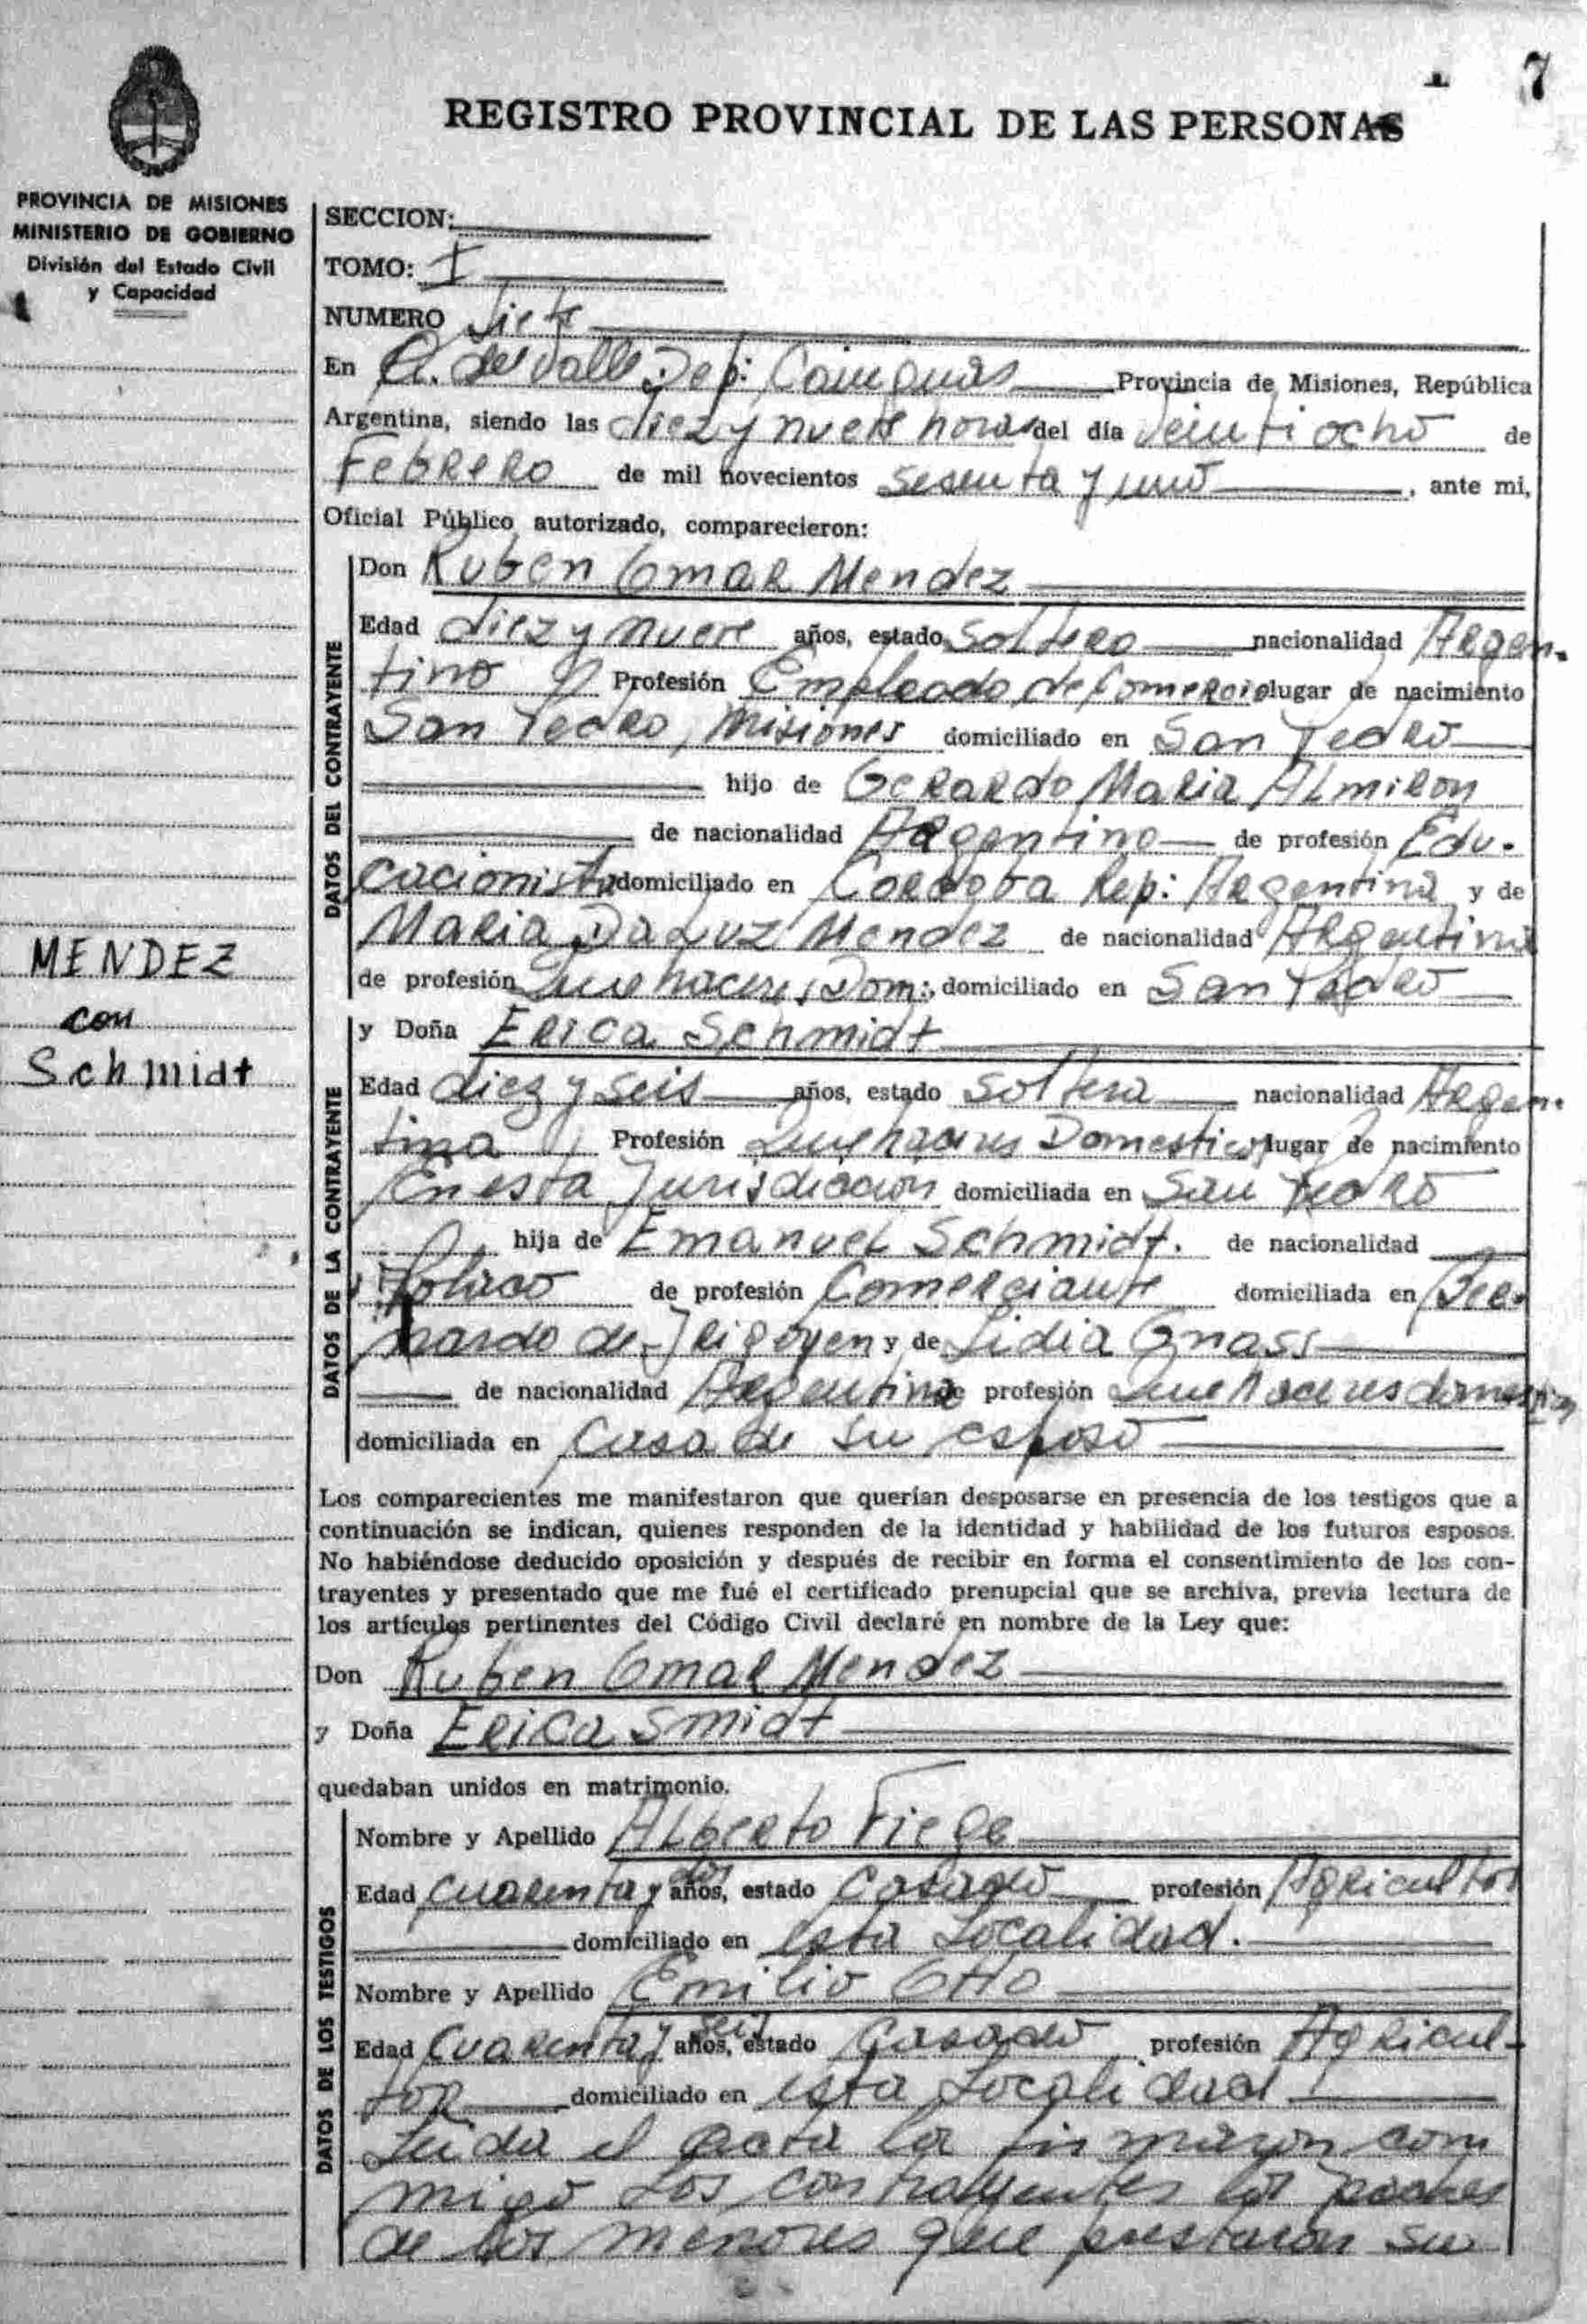 7
REGISTRO PROVINCIAL DE LAS PERSONAS
PROVINCIA DE MISIONES
MINISTERIO DE GOBIERNO
División del Estado Civil
y Capacidad
MENDEZ
con
Schmidt
SECCION:
TOMO: I
NUMERO Siete
En A. del Valle Dep: Cainguas Provincia de Misiones, República
Argentina, siendo las diez y nueve horas del día Veinti ocho de
Febrero de mil novecientos sesenta y uno, ante mi,
Oficial Público autorizado, comparecieron:
DATOS DEL CONTRAYENTE
Don Ruben Omar Mendez
Edad diez y nueve años, estado Soltero nacionalidad Argen-
tino Profesión Empleado de Comercio lugar de nacimiento
San Pedro, Misiones domiciliado en San Pedro
hijo de Gerardo Maria Almiron
de nacionalidad Argentino de profesión Edu-
cacionista domiciliado en Cordoba Rep: Argentina y de
Maria Da Luz Mendez de nacionalidad Argentina
de profesión Quehaceres Dom:, domiciliado en San Pedro
DATOS DE LA CONTRAYENTE
y Doña Erica Schmidt
Edad diez y seis años, estado Soltera nacionalidad Argen-
tina Profesión Quehaceres Domesticos lugar de nacimiento
En esta Jurisdiccion domiciliada en San Pedro
hija de Emanuel Schmidt. de nacionalidad
Polaco de profesión Comerciante domiciliada en Ber-
nardo de Irigoyen y de Lidia Gnass
de nacionalidad Argentina de profesión Quehaceres domesticos
domiciliada en Casa de su esposo
Los comparecientes me manifestaron que querían desposarse en presencia de los testigos que a
continuación se indican, quienes responden de la identidad y habilidad de los futuros esposos.
No habiéndose deducido oposición y después de recibir en forma el consentimiento de los con-
trayentes y presentado que me fué el certificado prenupcial que se archiva, previa lectura de
los artículos pertinentes del Código Civil declaré en nombre de la Ley que:
Don Ruben Omar Mendez
y Doña Erica Smidt
quedaban unidos en matrimonio.
DATOS DE LOS TESTIGOS
Nombre y Apellido Alberto Fiege
Edad cuarenta y dos años, estado Casado profesión Agricultor
domiciliado en esta Localidad.
Nombre y Apellido Emilio Otto
Edad Cuarenta y seis años, estado Casado profesión Agricul-
tor domiciliado en esta Localidad
Leida el acta la firmaron con
migo Los contrayentes los padres
de los menores que prestaron su